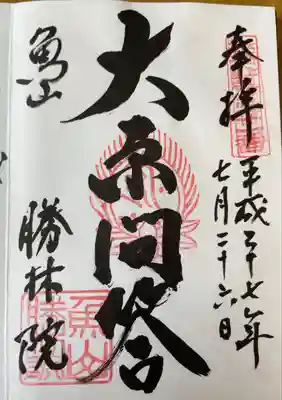 奉拝
平成二十七年
七月二十六日
大原問答
魚山
勝林院